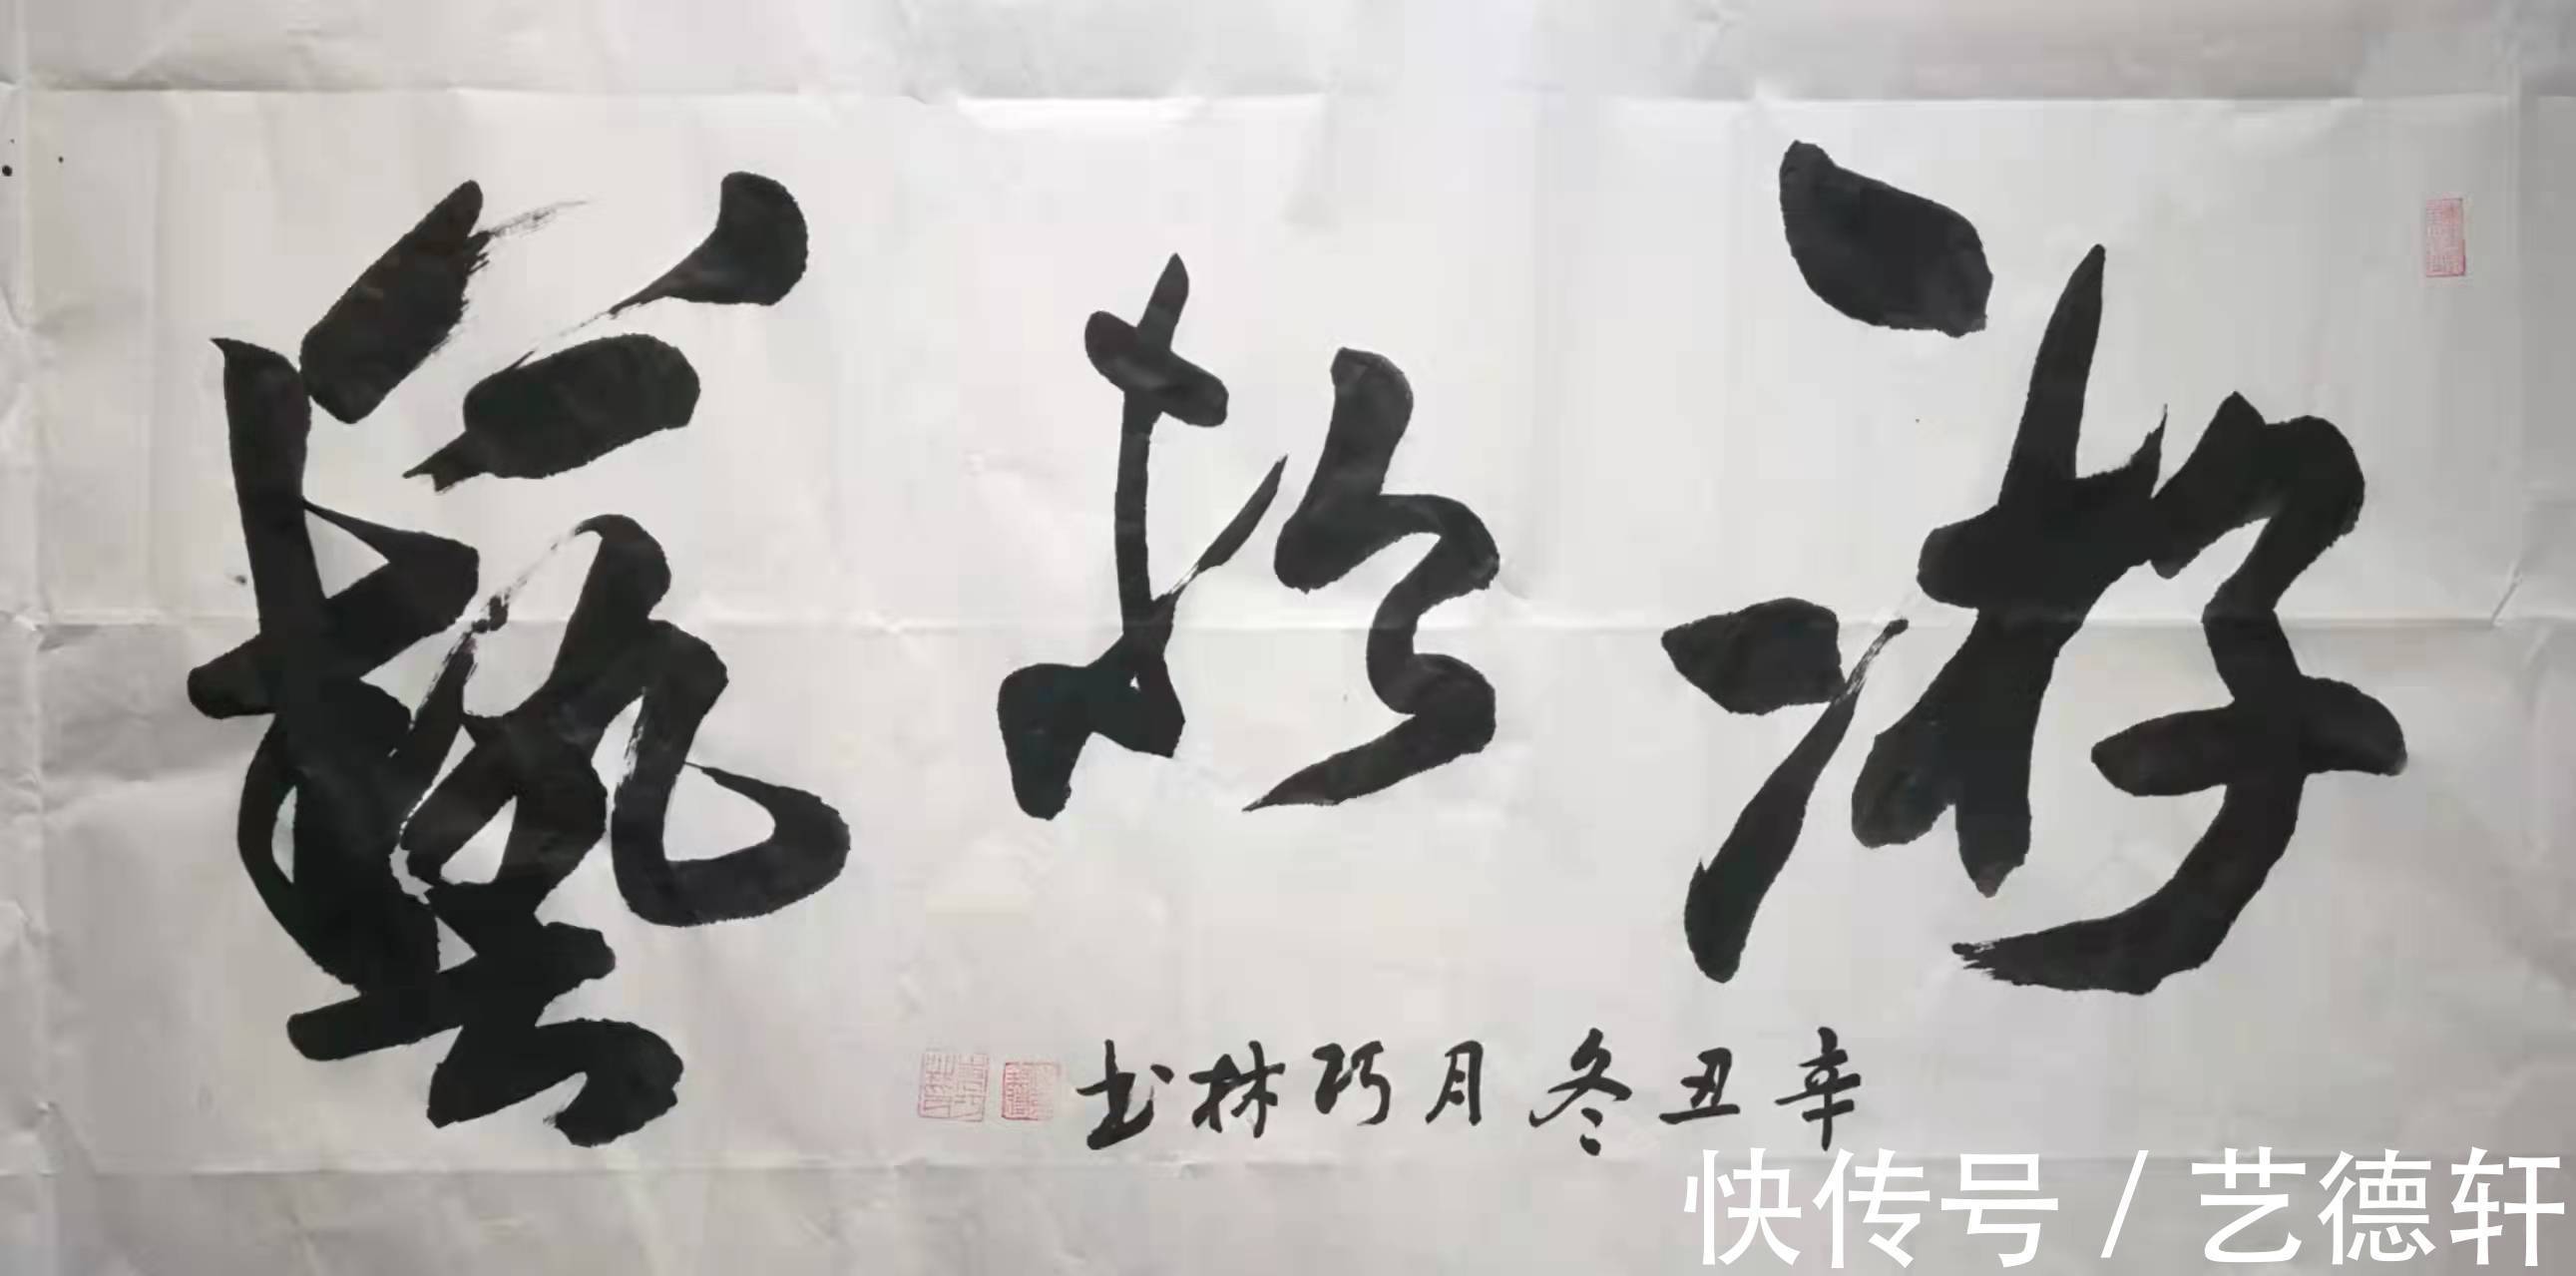 游於藝
辛丑冬月巧林书
快传号/艺德轩